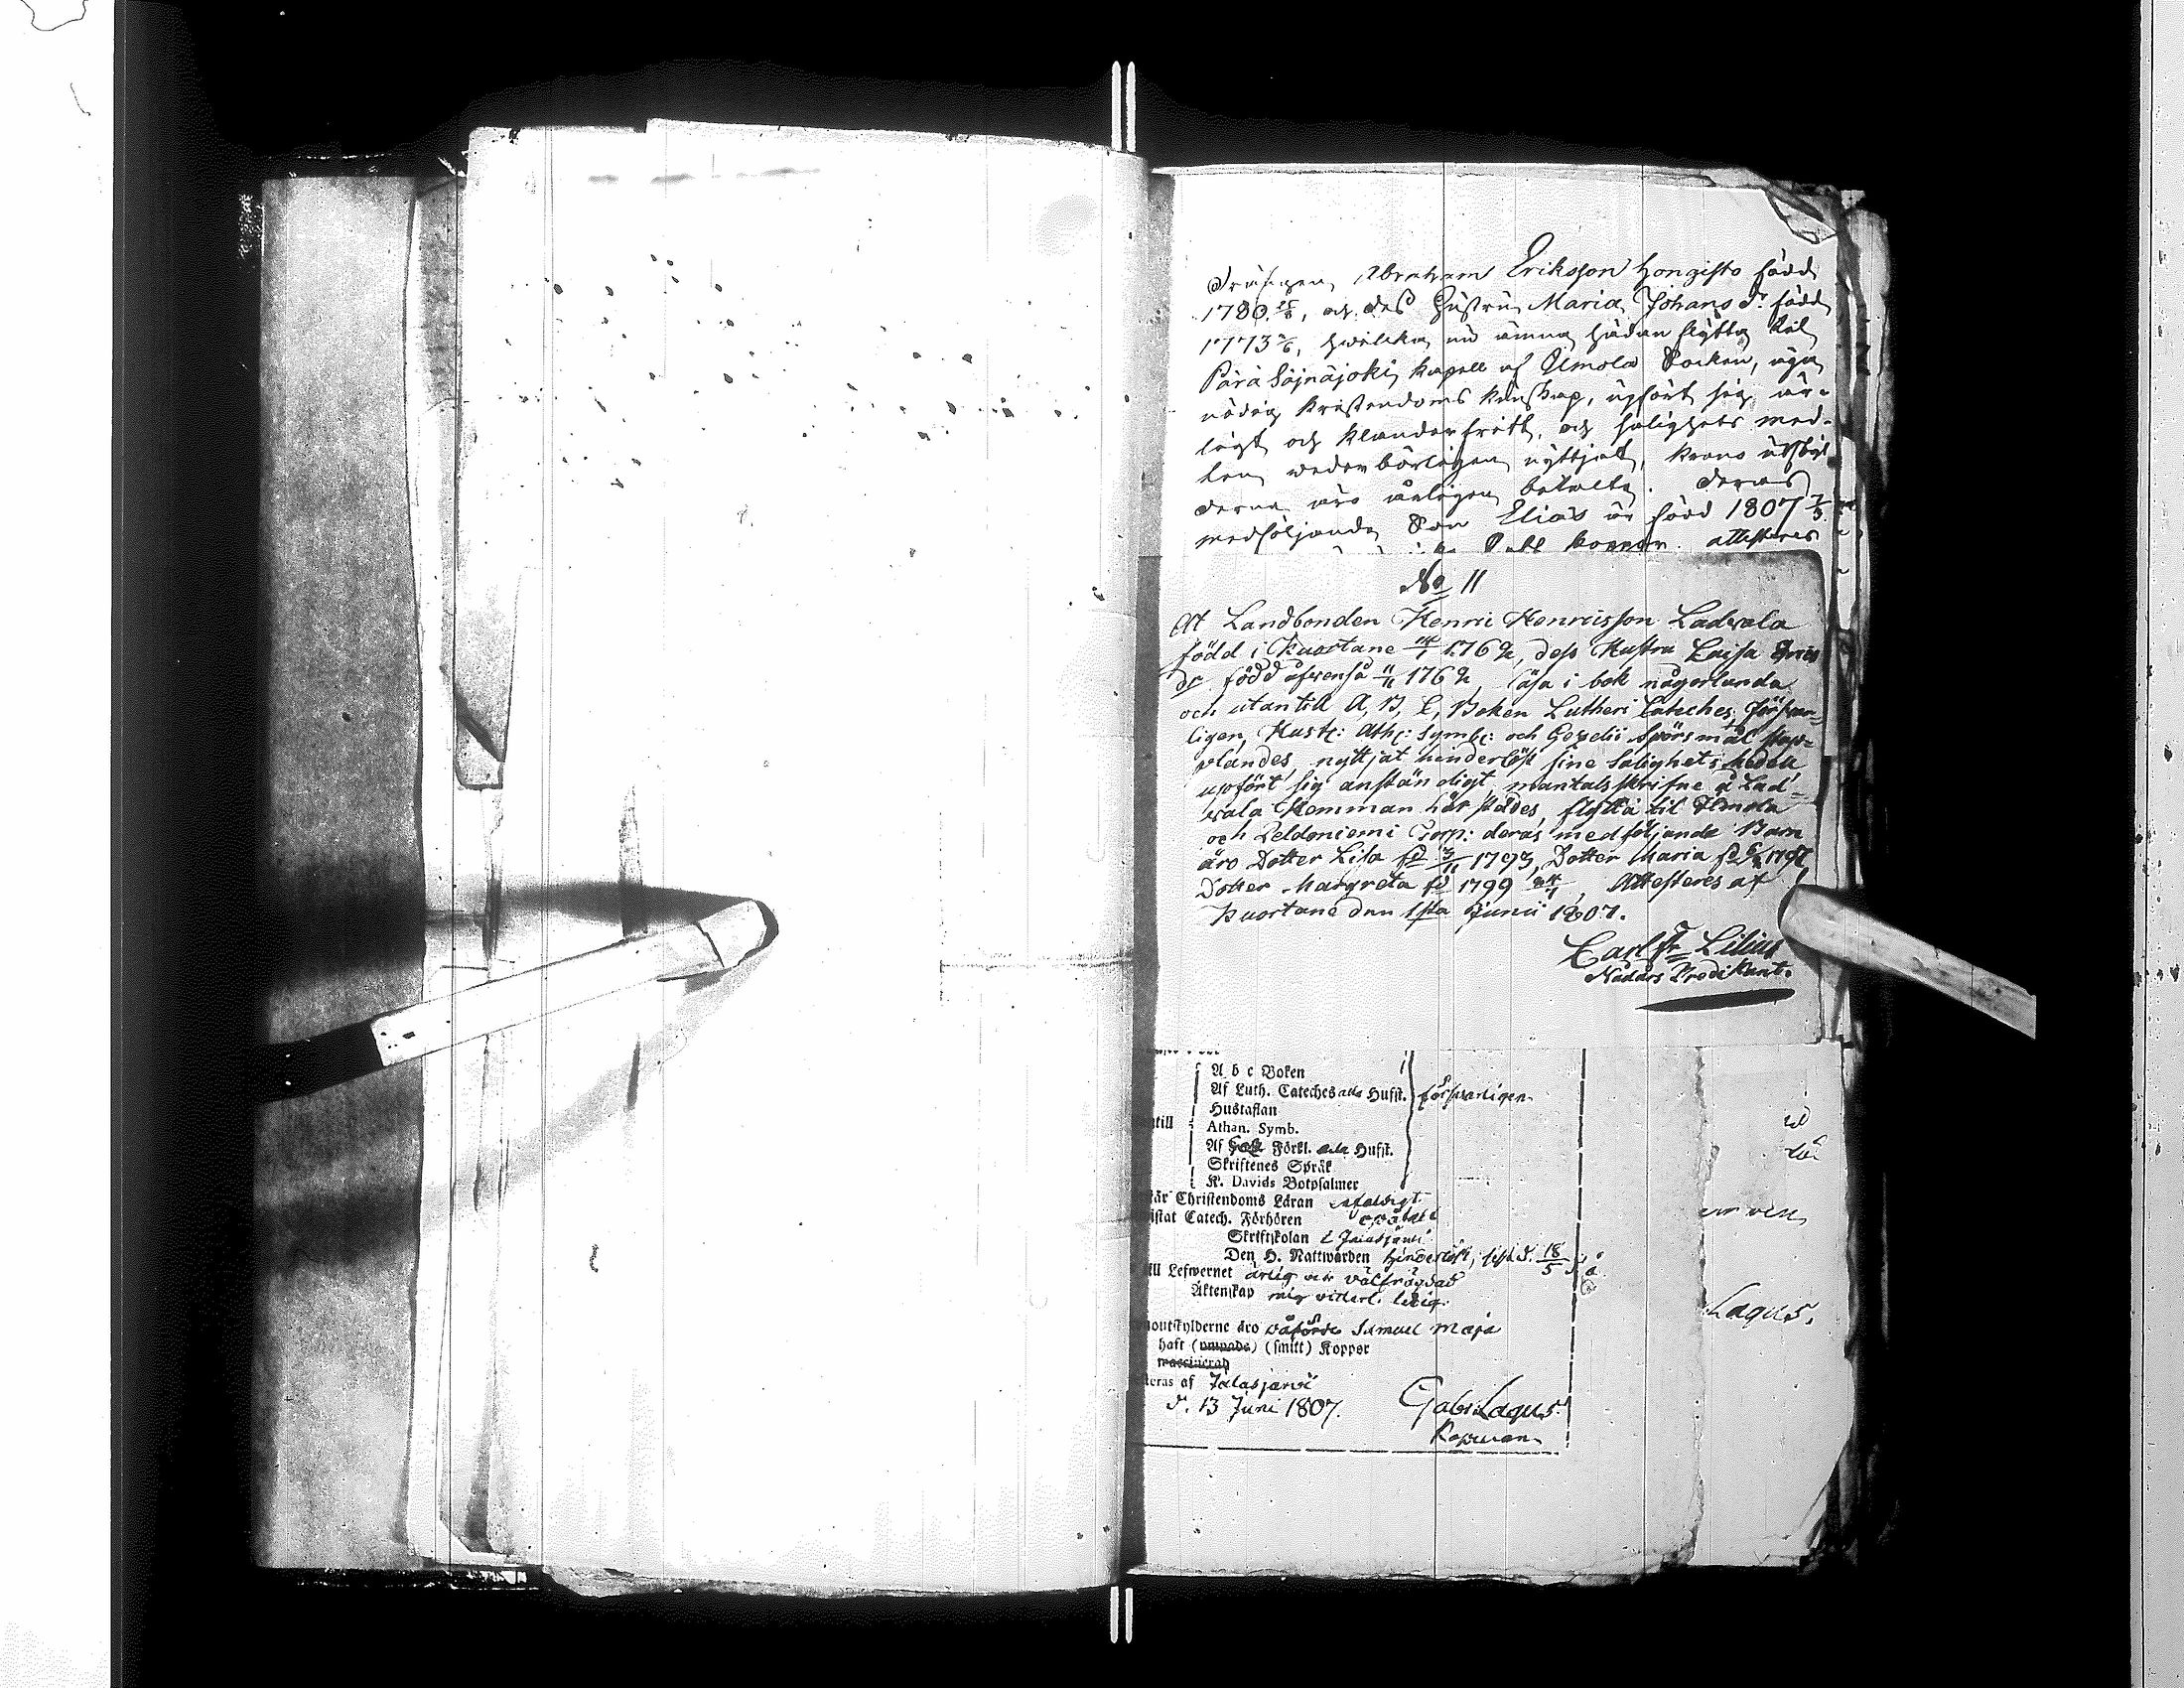 Drängen Abraham Eriksson Hongisto född
1780 25/8, och des Hustru Maria Johans dr född
1773 2/6, hwilka nu ämna hädan flytta till
Pärä Säjnäjoki kapell af Ilmola Socken, äga
nödig Kristendoms kunskap, upfört sig är-
ligt och klanderfritt, och salighets med-
len wederbörligen nyttjat, krono utskyl
derna äro ärligen betalta. Deras
medföljande Son Elias är född 1807 7/3
koppor. attesteres
No 11
At Landbonden Henric Henricsson Ladvala
född i Kuortane 14/1 1762, dess Hustru Caisa Erics
dr född äfvenså 11/11 1762, läsa i bok någorlunda
och utantill A, B, C, Boken Lutheri Cateches, försvar-
ligen, Hust: Ath: Symb: och Gezelii Spörsmål stap-
vlandes, nyttjat hinderlöst sine Salighets Medel
upfört sig anständigt, mantalsskrifne å Lad-
vala Hemman här städes, flytta til Ilmola
och Peldoniemi Torp: deras medföljande Barn
äro Dotter Lisa fd 3/11 1793, Dotter Maria fd
Dotter Margreta fd 1799 24/1, Attesteres af
Kuortane den 1sta Junii 1807.
Carl Fr Lilius
Nådårs Predikant.
A b c Boken
Af Luth. Cateches alla Hufst. försvarligen
Hustaflan
ntill Athan. Symb.
Af Förkl. alla Hufst.
Skriftenes Språk
K. Davids Botpsalmer
Christendoms Läran enfaldigt
istat Catech. Förhören
Skriftskolan i Jalasjärvi
Den H. Nattwarden hinderlöst, sist d. 18/5 d. å.
ill Lefwernet ärlig och välfrägdad
Äktenskap mig viterl. ledig.
outskylderne äro Samuel Maja
haft (smitt) Koppor
teras af Jalasjärvi
d. 13 Juni 1807. Gabr. Lagus.
Kapellan
Lagus.